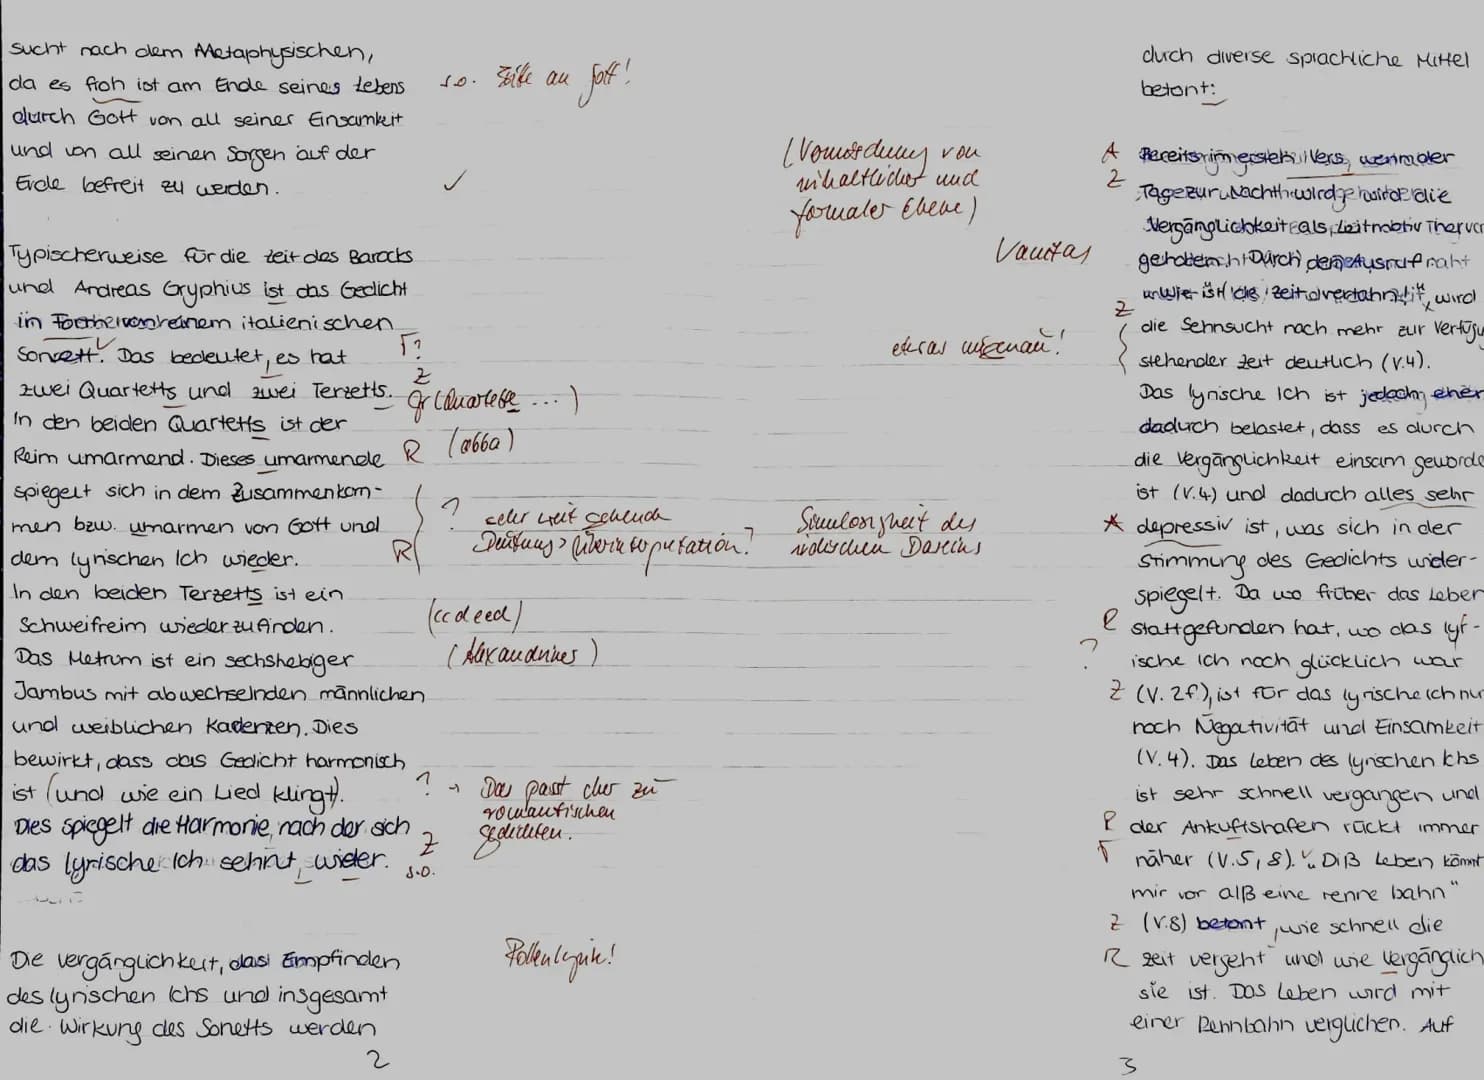 sucht nach dem Metaphysischen,
da es froh ist am Ende seines Lebens
durch Gott von all seiner Einsamkeit
und von all seinen Sorgen auf der
Erde befreit zu werden.
s.o. an Gott!
✓
Typischerweise für die Zeit des Barocks
und Andreas Gryphius ist das Gedicht
in einem italienischen
Sonett. Das bedeutet, es hat
zwei Quartetts und zwei Terzetts.
In den beiden Quartetts ist der
Reim umarmend. Dieses umarmende
spiegelt sich in dem Zusammenkom-
men bzw. umarmen von Gott und
dem lyrischen Ich wieder.
In den beiden Terzetts ist ein
Schweifreim wiederzufinden.
Das Metrum ist ein sechshebiger
Jambus mit abwechselnden männlichen
und weiblichen Kadenzen. Dies
bewirkt, dass das Gedicht harmonisch
ist (und wie ein Lied klingt).
Dies spiegelt die Harmonie, nach der sich
das lyrische Ich sehnt, wider.
Γ?
Z
Gr (Quartette ...)
R (abba)
? sehr weit gehende
R Deutung > Überinterpretation?
(ccdeed)
(Alexandriner)
? → Das passt eher zu
romantischen
Gedichten.
Z
s.o.
Die Vergänglichkeit, das Empfinden
des lyrischen Ichs und insgesamt
die Wirkung des Sonetts werden
Rollenlyrik!
2
(Vermischung von
inhaltlicher und
formaler Ebene)
Vanitas
etwas ungenau!
Sinnlosigkeit des
irdischen Daseins
durch diverse sprachliche Mittel
betont:
A Bereits im ersten Vers, wenn der
Z Tag zur Nacht wird, wird die
Vergänglichkeit als Leitmotiv
Durch den Ausruf
wird
Z die Sehnsucht nach mehr zur Verfügu
stehender Zeit deutlich (V.4).
Das lyrische Ich ist jedoch eher
dadurch belastet, dass es durch
die Vergänglichkeit einsam geworde
ist (V.4) und dadurch alles sehr
A depressiv ist, was sich in der
Stimmung des Gedichts wider-
spiegelt. Da wo früher das Leben
R stattgefunden hat, wo das lyr-
? ische Ich noch glücklich war
Z (V. 2f), ist für das lyrische Ich nur
noch Negativität und Einsamkeit
(V. 4). Das Leben des lyrischen Ichs
ist sehr schnell vergangen und
R der Ankuftshafen rückt immer
Γ näher (V.5, 8). „Diß Leben kömmt
mir vor alß eine renne bahn“
Z (V.8) betont, wie schnell die
R Zeit vergeht und wie Vergänglich
sie ist. Das Leben wird mit
einer Rennbahn verglichen. Auf
3